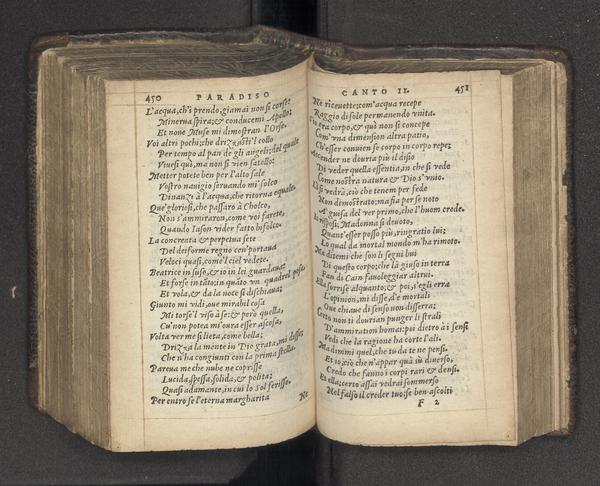 450 PARADISO
L'acqua, ch'i prendo, giamai non si corse:
Minerua spira; & conducemi Apollo;
Et noue Muse mi dimostran l'Orse.
Voi altri pochi; che drizzaste'l collo
Per tempo al pan de gli angeli; del quale
Viuesi quì, ma non si vien satollo;
Metter potete ben per l'alto sale
Vostro nauigio seruando mi' solco
Dinanzi à l'acqua, che ritorna equale.
Que' gloriosi, che passaro à Cholco,
Non s'ammiraron, come voi farete,
Quando Iason vider fatto bifolco.
La concreata & perpetua sete
Del deiforme regno cen' portaua
Veloci quasi, come'l ciel vedete.
Beatrice in suso, & io in lei guardaua;
Et forse in tāto; in quāto vn quadrel posa
Et vola, & da la noce si dischiaua;
Giunto mi vidi, oue mirabil cosa
Mi torse'l viso à se: & però quella,
Cu' non potea mi' oura esser ascosa,
Volta ver me si lieta, come bella;
Drizza la mente in Dio grata, mi disse;
Che n'ha congiunti con la prima stella.
Pareua me che nube ne coprisse
Lucida, spessa, solida, & polita;
Quasi adamante, in cui lo Sol ferisse.
Per entro se l'eterna margharita
Ne
CANTO II. 451
Ne riceuette; com'acqua recepe
Raggio di sole permanendo vnita.
S'io era corpo, & quì non si concepe
Com'vna dimension altra patio,
Ch'esser conuien se corpo in corpo repe;
Accender ne douria più il disio
Di veder quella essentia, in che si vede
Come nostra natura & Dio s'vnio.
Lì si vedrà, ciò che tenem per fede
Non dimostrato; ma fia per se noto
A guisa del ver primo, che l'huom crede.
Io risposi, Madonna si deuoto,
Quant'esser posso più, ringratio lui;
Lo qual da mortal mondo m'ha rimoto.
Ma ditemi che son li segni bui
Di questo corpo; che là giuso in terra
Fan di Cain fauoleggiar altrui.
Ella sorrise alquanto; & poi, s'egli erra
L'opinion, mi disse, d'e mortali
Oue chiaue di senso non disserra;
Certo non ti dourian punger li strali
D'ammiration homai: poi dietro à i sensi
Vedi che la ragione ha corte l'ali.
Ma dimmi quel, che tu da te ne pensi.
Et io; ciò che n'appar quà sù diuerso,
Credo che fanno i corpi rari & densi.
Et ella; certo assai vedrai sommerso
Nel falso il creder tuo; se ben ascolti
F 2